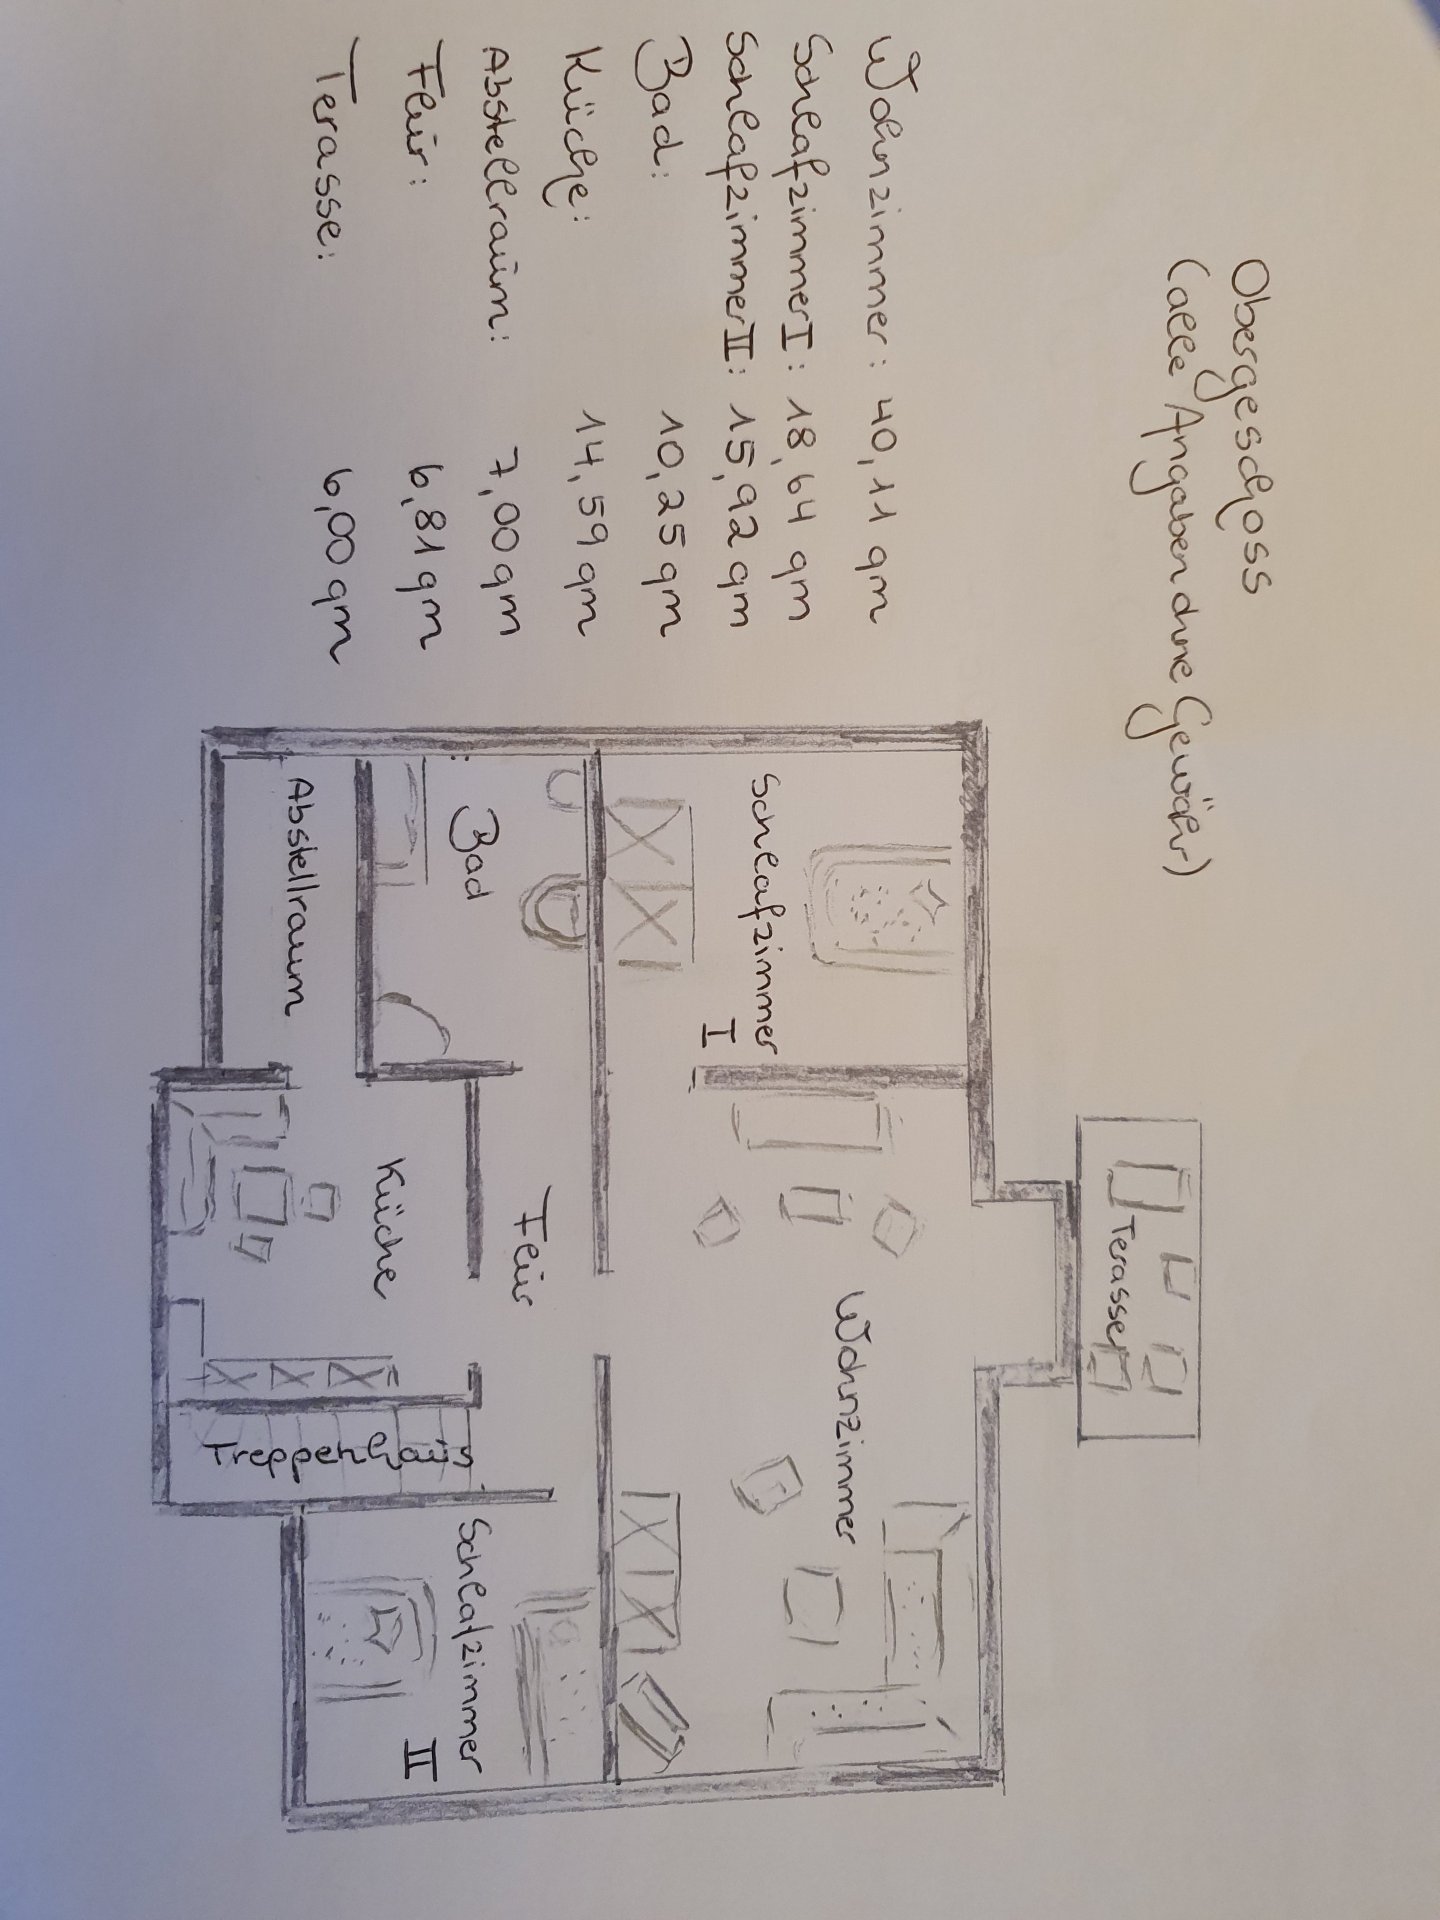 Obergeschoss
(alle Angaben ohne Gewähr)
Wohnzimmer: 40,11 qm
Schlafzimmer I: 18,64 qm
Schlafzimmer II: 15,92 qm
Bad: 10,25 qm
Küche: 14,59 qm
Abstellraum: 7,00 qm
Flur: 6,81 qm
Terasse: 6,00 qm
Terasse
Schlafzimmer
I
Wohnzimmer
Bad
Flur
Abstellraum
Küche
Treppenhaus
Schlafzimmer
II